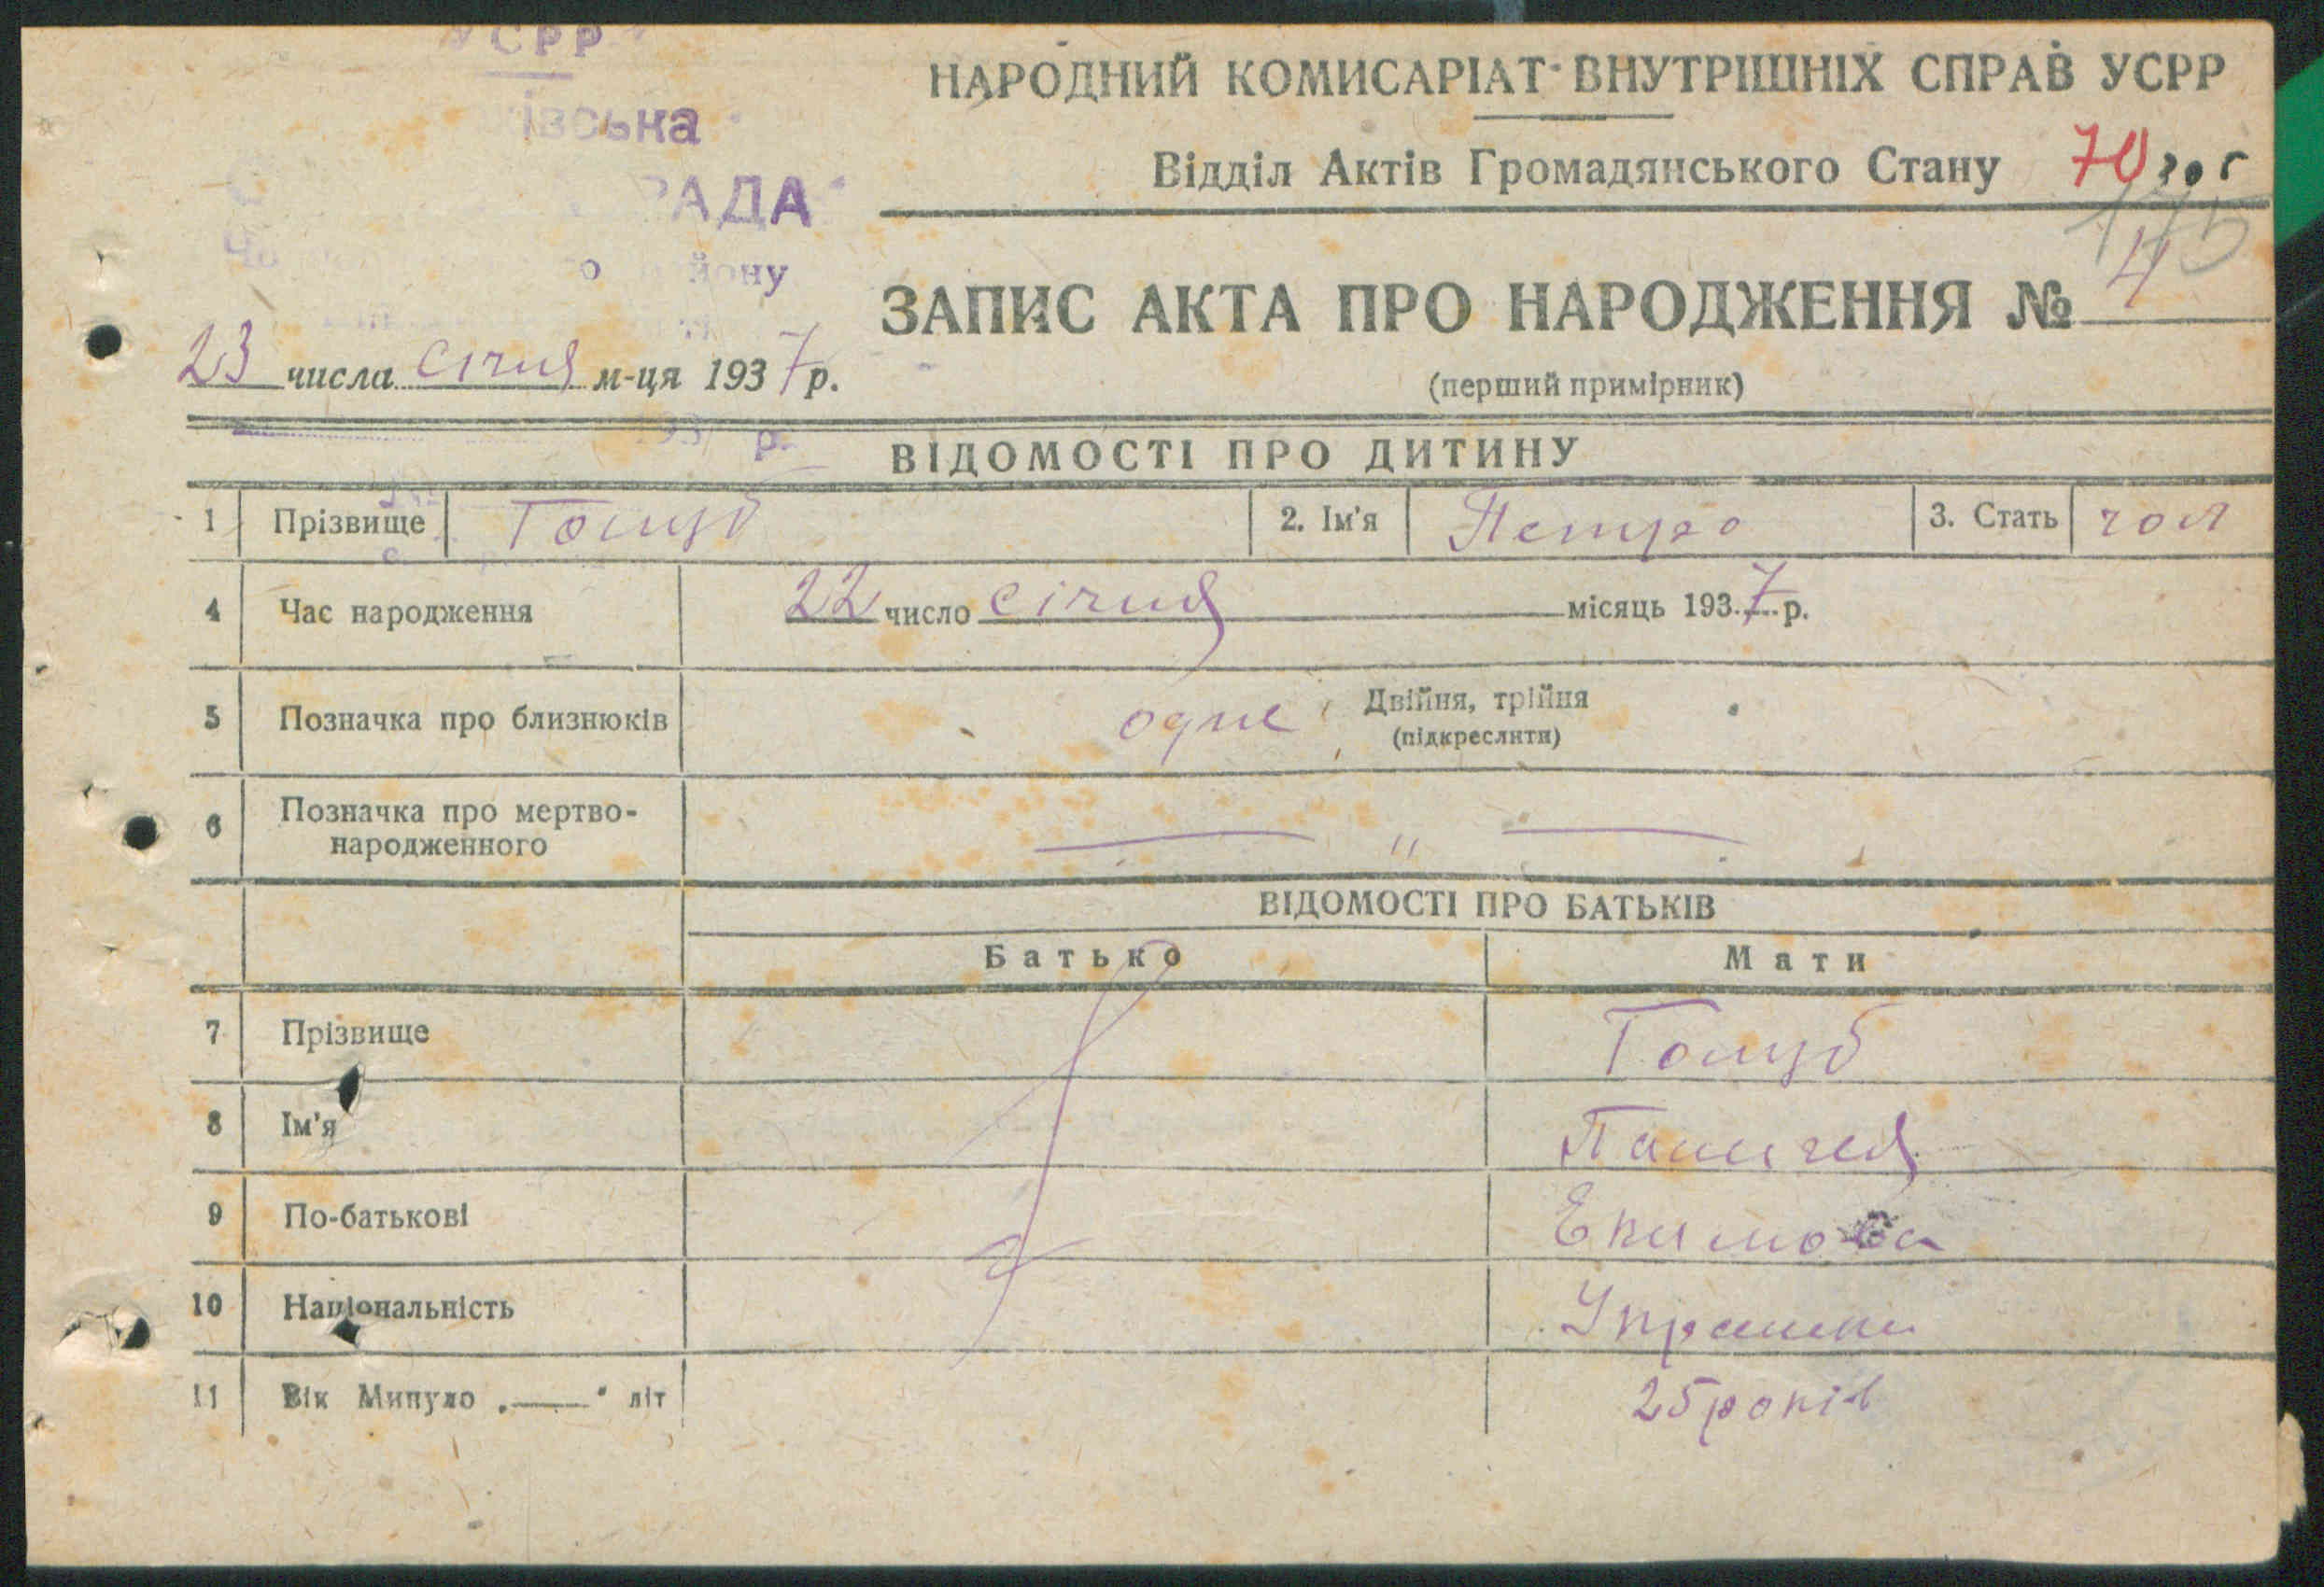 УСРР
НАРОДНИЙ КОМИСАРІАТ ВНУТРІШНІХ СПРАВ УСРР
івська
Відділ Актів Громадянського Стану 70
РАДА
175
району
ЗАПИС АКТА ПРО НАРОДЖЕННЯ № 4
23 числа січня м-ця 1937 р.
(перший примірник)
193 р.
ВІДОМОСТІ ПРО ДИТИНУ
1 Прізвище Голуб 2. Ім'я Петро 3. Стать чол
4 Час народження 22 число січня місяць 1937 р.
5 Позначка про близнюків одне Двійня, трійня
(підкреслити)
6 Позначка про мертво-
народженного — " —
ВІДОМОСТІ ПРО БАТЬКІВ
Батько Мати
7 Прізвище Голуб
8 Ім'я
9 По-батькові Екимова
10 Національність Украинка
11 Вік Минуло „—“ літ 25 років